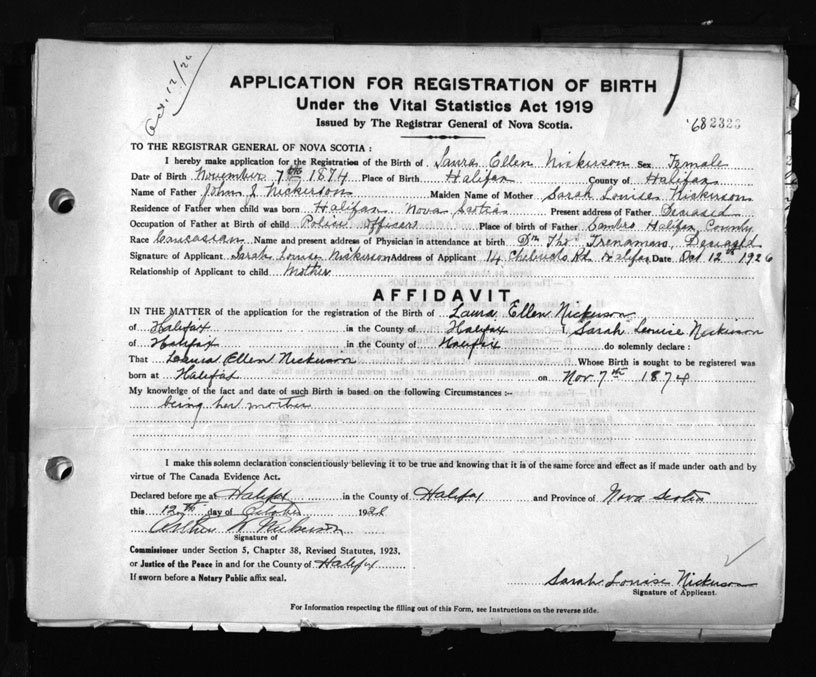 Oct. 12/26
APPLICATION FOR REGISTRATION OF BIRTH
Under the Vital Statistics Act 1919
Issued by The Registrar General of Nova Scotia.
TO THE REGISTRAR GENERAL OF NOVA SCOTIA :
I hereby make application for the Registration of the Birth of Laura Ellen Nickerson Sex Female
Date of Birth November 7th 1874 Place of Birth Halifax County of Halifax
Name of Father John Nickerson Maiden Name of Mother Sarah Louise Nickerson
Residence of Father when child was born Halifax Nova Scotia Present address of Father Deceased
Occupation of Father at Birth of child Police Officer Place of birth of Father Halifax County
Race Caucasian Name and present address of Physician in attendance at birth Dr. Thos Trenaman, Deceased
Signature of Applicant Sarah Louise Nickerson Address of Applicant 14 Chebucto Rd Halifax Date Oct 12th 1926
Relationship of Applicant to child Mother
AFFIDAVIT
IN THE MATTER of the application for the registration of Birth of Laura Ellen Nickerson
of Halifax in the County of Halifax I, Sarah Louise Nickerson
of Halifax in the County of Halifax do solemnly declare :
That Laura Ellen Nickerson Whose Birth is sought to be registered was
born at Halifax on Nov 7th 1874
My knowledge of the fact and date of such Birth is based on the following Circumstances :—
being her mother
I make this solemn declaration conscientiously believing it to be true and knowing that it is of the same force and effect as if made under oath and by
virtue of The Canada Evidence Act.
Declared before me at Halifax in the County of Halifax and Province of Nova Scotia
this 12th day of October 192
Arthur W Nickerson
Signature of
Commissioner under Section 5, Chapter 38, Revised Statutes, 1923.
or Justice of the Peace in and for the County of Halifax
If sworn before a Notary Public affix seal.
Sarah Louise Nickerson
Signature of Applicant.
For Information respecting the filling out of this Form, see Instructions on the reverse side.